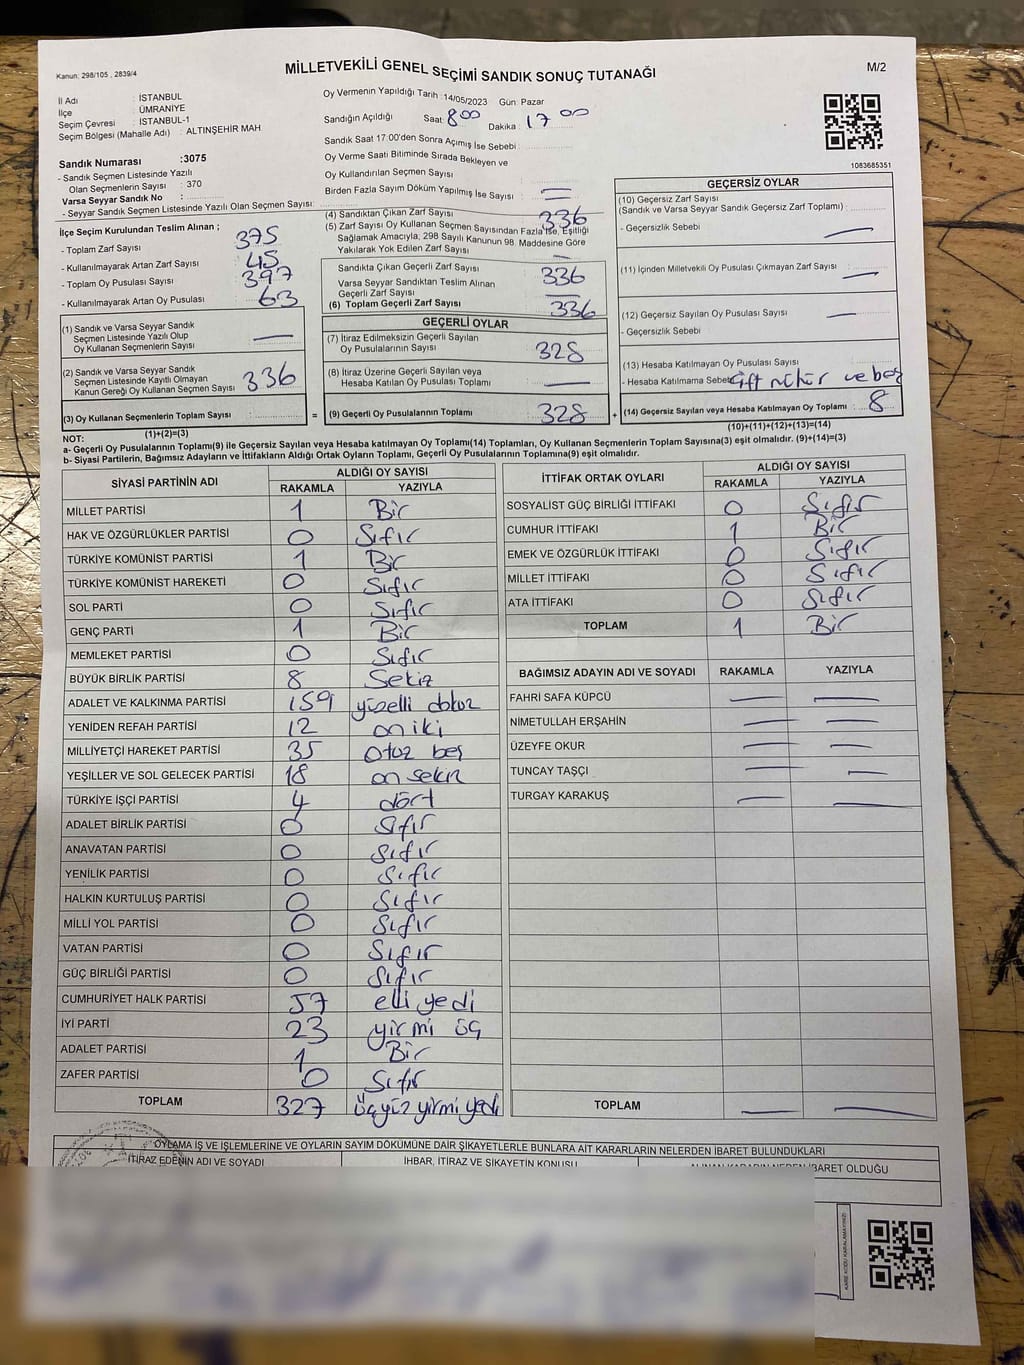 Kanun: 298/105 , 2839/4
MİLLETVEKİLİ GENEL SEÇİMİ SANDIK SONUÇ TUTANAĞI
M/2
İl Adı : İSTANBUL
İlçe : ÜMRANİYE
Seçim Çevresi : İSTANBUL-1
Seçim Bölgesi (Mahalle Adı) : ALTINŞEHİR MAH
Oy Vermenin Yapıldığı Tarih : 14/05/2023 Gün: Pazar
Sandığın Açıldığı Saat: 8 00 Dakika : 17 00
Sandık Saat 17:00'den Sonra Açımış İse Sebebi :
Oy Verme Saati Bitiminde Sırada Bekleyen ve
Oy Kullandırılan Seçmen Sayısı :
Birden Fazla Sayım Döküm Yapılmış İse Sayısı :
1083685351
Sandık Numarası :3075
- Sandık Seçmen Listesinde Yazılı
Olan Seçmenlerin Sayısı : 370
Varsa Seyyar Sandık No :
- Seyyar Sandık Seçmen Listesinde Yazılı Olan Seçmen Sayısı:
İlçe Seçim Kurulundan Teslim Alınan ;
- Toplam Zarf Sayısı : 375
- Kullanılmayarak Artan Zarf Sayısı : 45
- Toplam Oy Pusulası Sayısı : 397
- Kullanılmayarak Artan Oy Pusulası : 63
(1) Sandık ve Varsa Seyyar Sandık
Seçmen Listesinde Yazılı Olup
Oy Kullanan Seçmenlerin Sayısı :
(2) Sandık ve Varsa Seyyar Sandık
Seçmen Listesinde Kayıtlı Olmayan
Kanun Gereği Oy Kullanan Seçmen Sayısı : 336
(3) Oy Kullanan Seçmenlerin Toplam Sayısı :
(1)+(2)=(3)
(4) Sandıktan Çıkan Zarf Sayısı : 336
(5) Zarf Sayısı Oy Kullanan Seçmen Sayısından Fazla İse, Eşitliği
Sağlamak Amacıyla, 298 Sayılı Kanunun 98. Maddesine Göre
Yakılarak Yok Edilen Zarf Sayısı :
Sandıkta Çıkan Geçerli Zarf Sayısı : 336
Varsa Seyyar Sandıktan Teslim Alınan
Geçerli Zarf Sayısı :
(6) Toplam Geçerli Zarf Sayısı : 336
GEÇERLİ OYLAR
(7) İtiraz Edilmeksizin Geçerli Sayılan
Oy Pusulalarının Sayısı : 328
(8) İtiraz Üzerine Geçerli Sayılan veya
Hesaba Katılan Oy Pusulası Toplamı :
= (9) Geçerli Oy Pusulalarının Toplamı : 328 +
GEÇERSİZ OYLAR
(10) Geçersiz Zarf Sayısı
(Sandık ve Varsa Seyyar Sandık Geçersiz Zarf Toplamı) :
- Geçersizlik Sebebi :
(11) İçinden Milletvekili Oy Pusulası Çıkmayan Zarf Sayısı :
(12) Geçersiz Sayılan Oy Pusulası Sayısı :
- Geçersizlik Sebebi :
(13) Hesaba Katılmayan Oy Pusulası Sayısı :
- Hesaba Katılmama Sebebi : Çift mühür ve boş
(14) Geçersiz Sayılan veya Hesaba Katılmayan Oy Toplamı : 8
(10)+(11)+(12)+(13)=(14)
NOT:
a- Geçerli Oy Pusulalarının Toplamı(9) ile Geçersiz Sayılan veya Hesaba katılmayan Oy Toplamı(14) Toplamları, Oy Kullanan Seçmenlerin Toplam Sayısına(3) eşit olmalıdır. (9)+(14)=(3)
b- Siyasi Partilerin, Bağımsız Adayların ve İttifakların Aldığı Ortak Oyların Toplamı, Geçerli Oy Pusulalarının Toplamına(9) eşit olmalıdır.
SİYASİ PARTİNİN ADI ALDIĞI OY SAYISI
RAKAMLA YAZIYLA
MİLLET PARTİSİ 1 Bir
HAK VE ÖZGÜRLÜKLER PARTİSİ 0 Sıfır
TÜRKİYE KOMÜNİST PARTİSİ 1 Bir
TÜRKİYE KOMÜNİST HAREKETİ 0 Sıfır
SOL PARTİ 0 Sıfır
GENÇ PARTİ 1 Bir
MEMLEKET PARTİSİ 0 Sıfır
BÜYÜK BİRLİK PARTİSİ 8 Sekiz
ADALET VE KALKINMA PARTİSİ 159 yüzelli dokuz
YENİDEN REFAH PARTİSİ 12 on iki
MİLLİYETÇİ HAREKET PARTİSİ 35 otuz beş
YEŞİLLER VE SOL GELECEK PARTİSİ 18 on sekiz
TÜRKİYE İŞÇİ PARTİSİ 4 dört
ADALET BİRLİK PARTİSİ 0 sıfır
ANAVATAN PARTİSİ 0 sıfır
YENİLİK PARTİSİ 0 sıfır
HALKIN KURTULUŞ PARTİSİ 0 Sıfır
MİLLİ YOL PARTİSİ 0 Sıfır
VATAN PARTİSİ 0 Sıfır
GÜÇ BİRLİĞİ PARTİSİ 0 Sıfır
CUMHURİYET HALK PARTİSİ 57 elli yedi
İYİ PARTİ 23 yirmi üç
ADALET PARTİSİ 1 Bir
ZAFER PARTİSİ 0 Sıfır
TOPLAM 327 üçyüz yirmi yedi
İTTİFAK ORTAK OYLARI ALDIĞI OY SAYISI
RAKAMLA YAZIYLA
SOSYALİST GÜÇ BİRLİĞİ İTTİFAKI 0 Sıfır
CUMHUR İTTİFAKI 1 Bir
EMEK VE ÖZGÜRLÜK İTTİFAKI 0 Sıfır
MİLLET İTTİFAKI 0 Sıfır
ATA İTTİFAKI 0 Sıfır
TOPLAM 1 Bir
BAĞIMSIZ ADAYIN ADI VE SOYADI RAKAMLA YAZIYLA
FAHRİ SAFA KÜPCÜ
NİMETULLAH ERŞAHİN
ÜZEYFE OKUR
TUNCAY TAŞÇI
TURGAY KARAKUŞ
TOPLAM
OYLAMA İŞ VE İŞLEMLERİNE VE OYLARIN SAYIM DÖKÜMÜNE DAİR ŞİKAYETLERLE BUNLARA AİT KARARLARIN NELERDEN İBARET BULUNDUKLARI
İTİRAZ EDENİN ADI VE SOYADI İHBAR, İTİRAZ VE ŞİKAYETİN KONUSU ALINAN KARARIN NEDEN İBARET OLDUĞU
KARE KODU KARALAMAYINIZ!